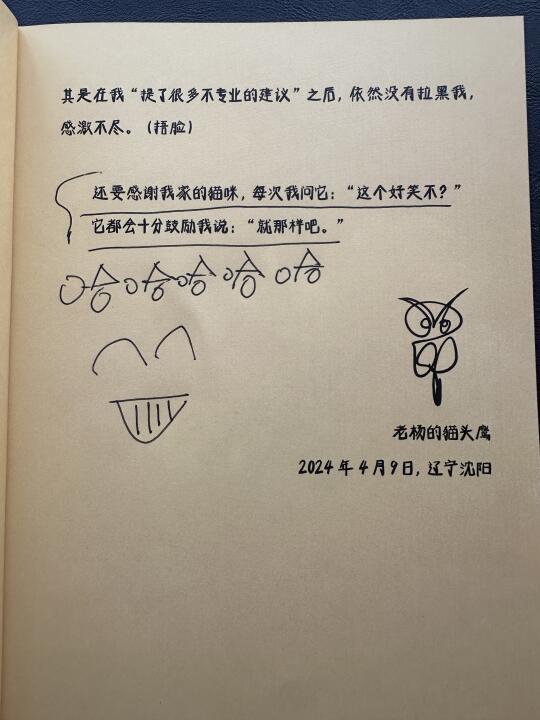 其是在我“提了很多不专业的建议”之后，依然没有拉黑我，
感激不尽。（捂脸）
还要感谢我家的猫咪，每次我问它：“这个好笑不？”
它都会十分鼓励我说：“就那样吧。”
哈哈哈哈哈
老杨的猫头鹰
2024 年 4 月 9 日，辽宁沈阳